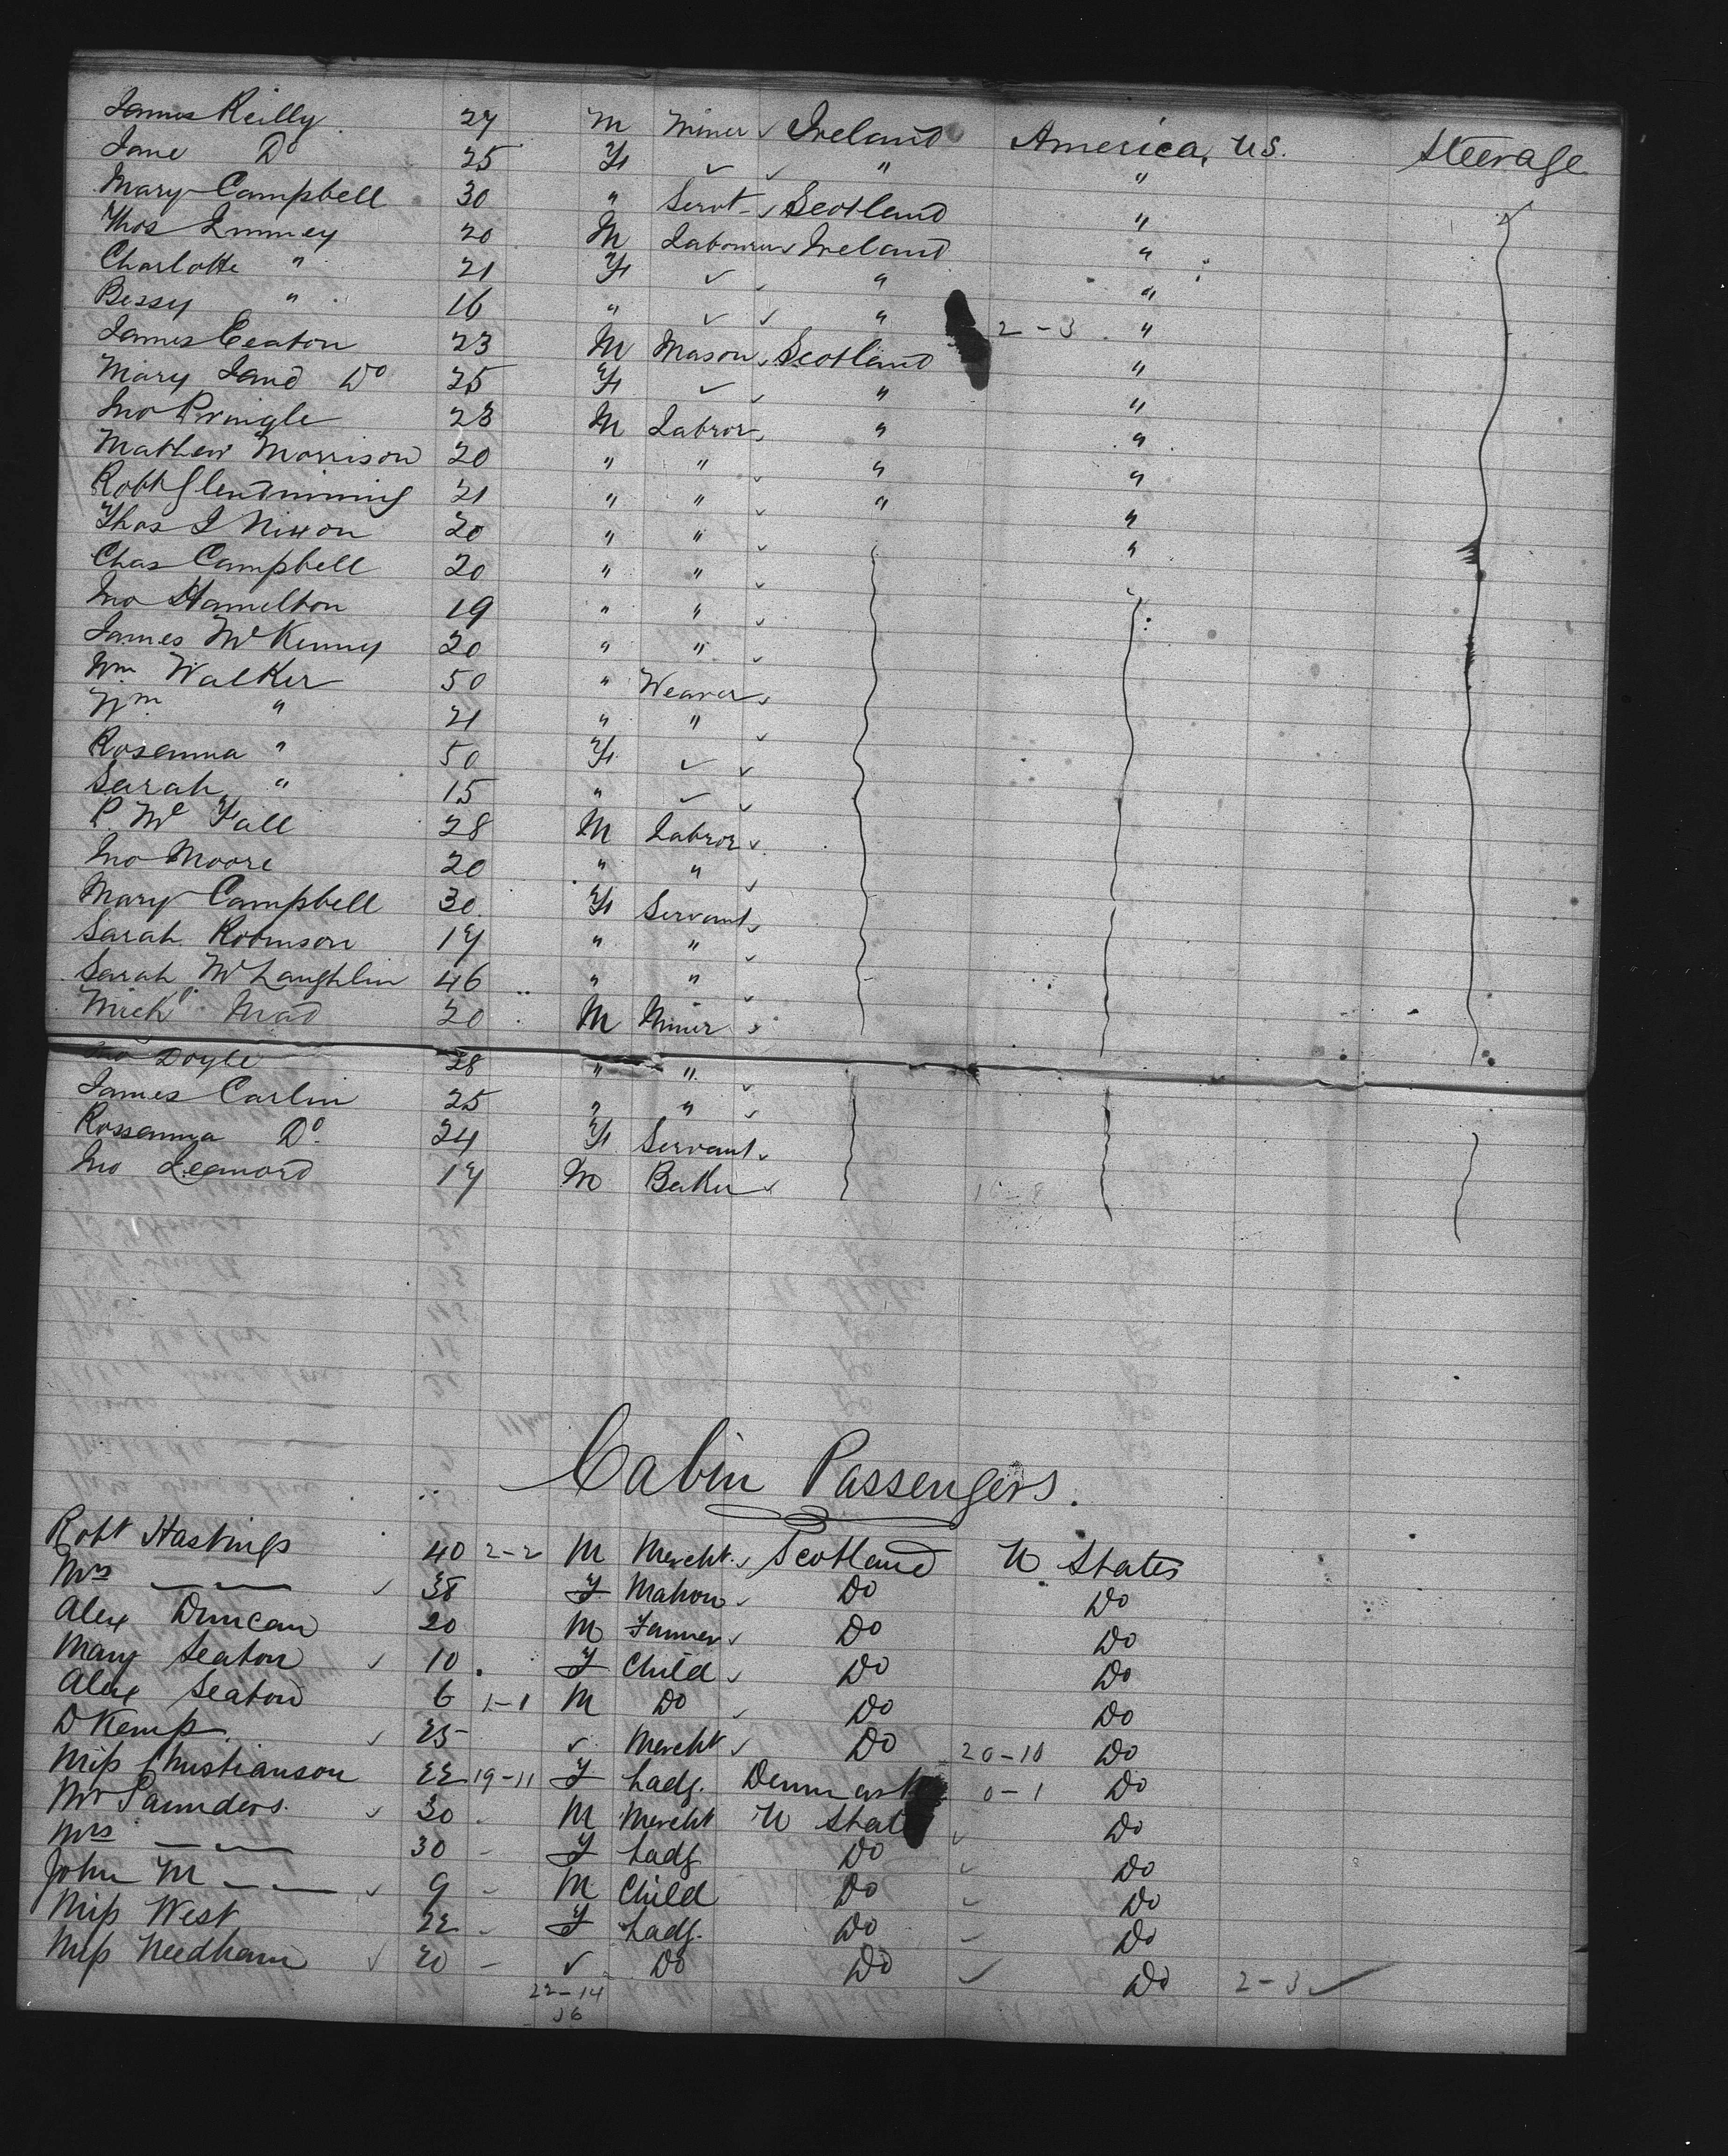 James Reilly 27 M Miner ✓ Ireland America, U.S. Steerage
Jane Do 25 F ✓ ✓ " "
Mary Campbell 30 " Servt ✓ Scotland "
Thos 20 M Labourer ✓ Ireland "
Charlotte " 21 F ✓ ✓ " "
Bessy " 16 " ✓ ✓ " 2-3 "
James Ceaton 23 M Mason ✓ Scotland "
Mary Jane Do 25 F ✓ ✓ " "
Jno Pringle 28 M Labror ✓ " "
Mathew Morrison 20 " " ✓ " "
Robt Glendinning 21 " " ✓ " "
Thos J Nixon 20 " " ✓ "
Chas Campbell 20 " " ✓
Jno Hamelton 19 " " ✓
James McKenny 20 " " ✓
Wm Walker 50 " Weaver ✓
Wm " 21 " " ✓
Rosanna " 50 F ✓ ✓
Sarah " 15 " ✓ ✓
P. McFall 28 M Labror ✓
Jno Moore 20 " " ✓
Mary Campbell 30 F Servant ✓
Sarah Robinson 17 " " ✓
Sarah McLaughlin 46 " " ✓
Mick 20 M Miner ✓
Jno Doyle 28 " " ✓
James Carlin 25 " " ✓
Rossanna Do 24 F Servant ✓
Jno Leanord 17 M Baker ✓
Cabin Passengers.
Robt Hastings 40 2-2 M Mercht. ✓ Scotland U States
Mrs —— ✓ 38 F Matron ✓ Do Do
Alex Duncan 20 M Farmer ✓ Do Do
Mary Seaton ✓ 10 F Child ✓ Do Do
Alex Seaton 6 1-1 M Do ✓ Do Do
D Kemp ✓ 25 ✓ Mercht ✓ Do 20-10 Do
Miss Christianson 22 19-11 F Lady. Denmark 0-1 Do
Mr Saunders. ✓ 30 M Mercht U Stat ✓ Do
Mrs —— 30 - F Lady Do ✓ Do
John M —— ✓ 9 - M Child Do ✓ Do
Miss West 22 - F Lady. Do ✓ Do
Miss Needham ✓ 20 - ✓ Do Do ✓ Do 2-3 ✓
22-14